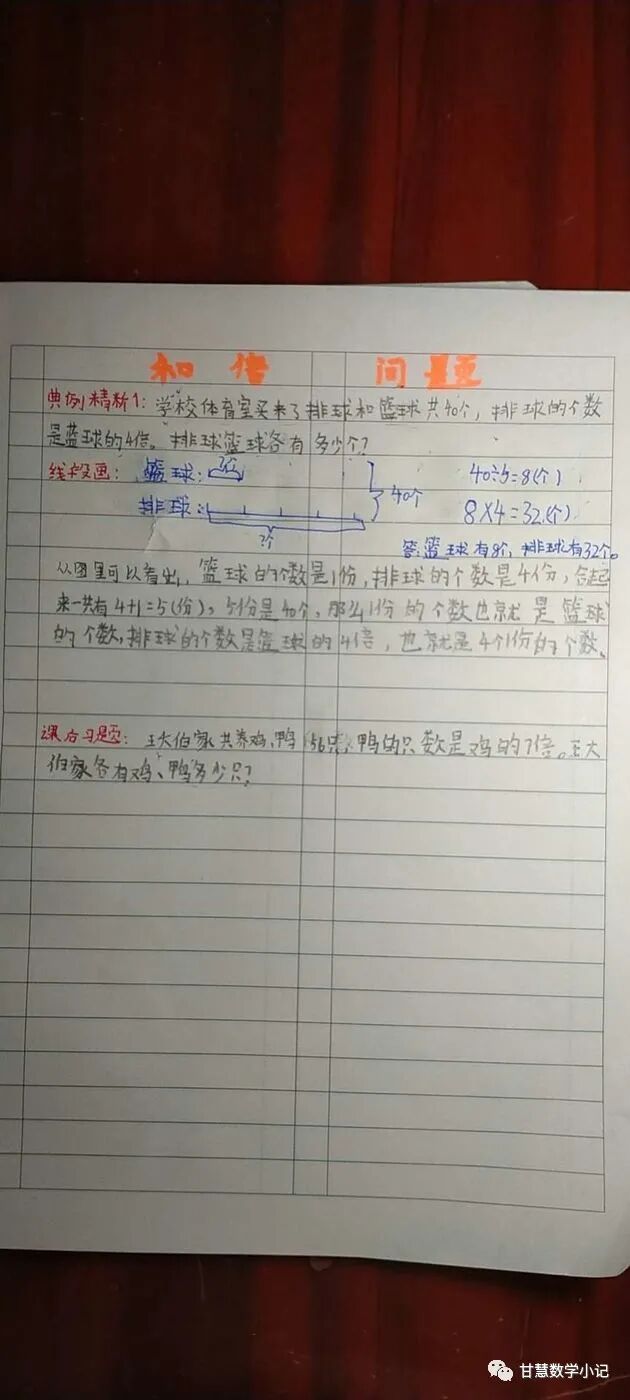 和倍问题
典例精析1：学校体育室买来了排球和篮球共40个，排球的个数
是蓝球的4倍。排球篮球各有多少个？
线段画：篮球：?个
40÷5=8(个)
排球： 40个
8×4=32(个)
?个
答：篮球有8个，排球有32个。
从图里可以看出，篮球的个数是1份，排球的个数是4份，合起
来一共有4+1=5(份)，5份是40个，那么1份的个数也就是篮球
的个数，排球的个数是篮球的4倍，也就是4个1份的个数。
课后习题：王大伯家共养鸡、鸭156只，鸭的只数是鸡的7倍。王大
伯家各有鸡、鸭多少只？
甘慧数学小记